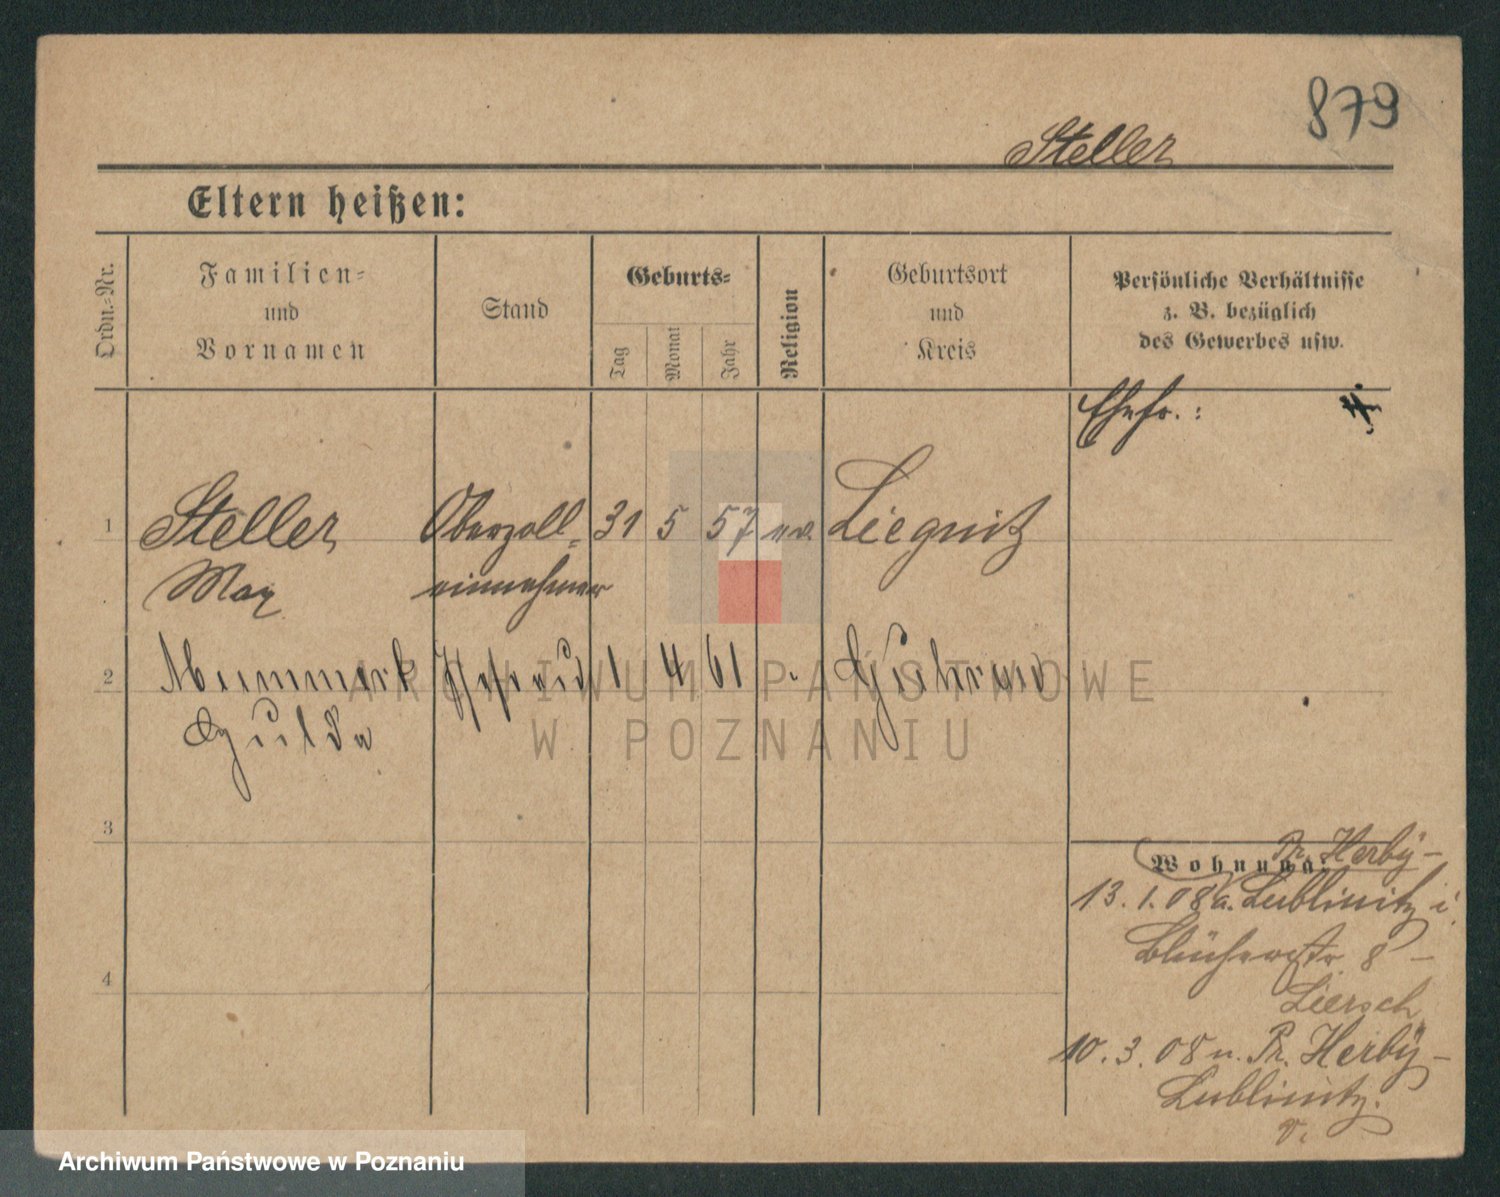 879
Steller
Eltern heißen:
Ordn.-Nr.
Familien-
und
Vornamen
Stand
Geburts-
Tag
Monat
Jahr
Religion
Geburtsort
und
Kreis
Persönliche Verhältnisse
z. B. bezüglich
des Gewerbes usw.
Ehefr. :
1
Steller
Max
Oberzoll-
einnehmer
31 5 57 ev. Liegnitz
2
Hulda
1 4 61
3
4
Wohnung:
Pr. Herby-
13. 1. 08 a. Lublinitz i.
Blücherstr. 8 -
Liersch
10. 3. 08 n. Pr. Herby-
Lublinitz.
v.
ARCHIWUM PAŃSTWOWE
W POZNANIU
Archiwum Państwowe w Poznaniu